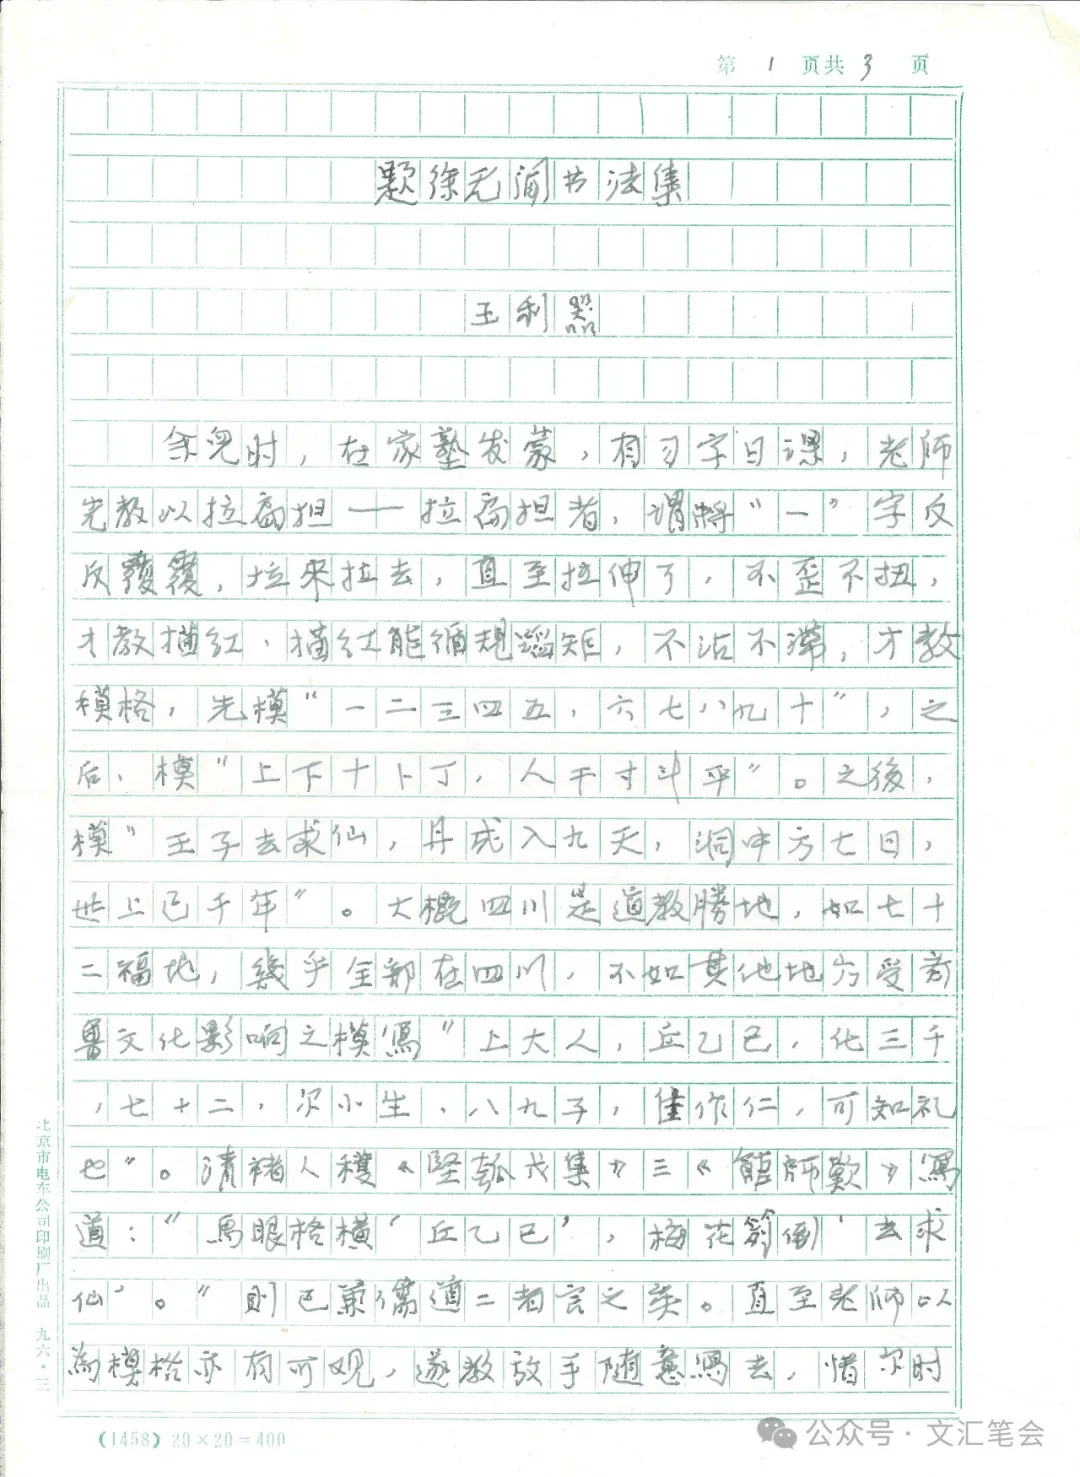 第 1 页共 3 页
题徐无闻书法集
王利器
余兒时，在家塾发蒙，有习字日課，老师
先教以拉扁担——拉扁担者，谓将“一”字反
反覆覆，拉来拉去，直至拉伸了，不歪不扭，
才教描红，描红能循规蹈矩，不沾不滞，才教
模格，先模“一二三四五，六七八九十”，之
后，模“上下十卜丁，人千寸斗平”。之後，
模“王子去求仙，丹成入九天，洞中方七日，
世上已千年”。大概四川是道教勝地，如七十
二福地，幾乎全部在四川，不如其他地方受齐
鲁文化影响之模寫“上大人，丘乙己，化三千
，七十二，尔小生，八九子，佳作仁，可知礼
也”。清褚人穫《坚瓠戊集》三《館师歎》寫
道：“馬眼格横‘丘乙己’，梅花剪倒‘去求
仙’。”则已兼儒道二者言之矣。直至老师以
為模格亦有可观，遂教放手随意寫去，惜尔时
北京市电车公司印刷厂出品 九六·三
(1458) 20×20=400
公众号·文汇笔会